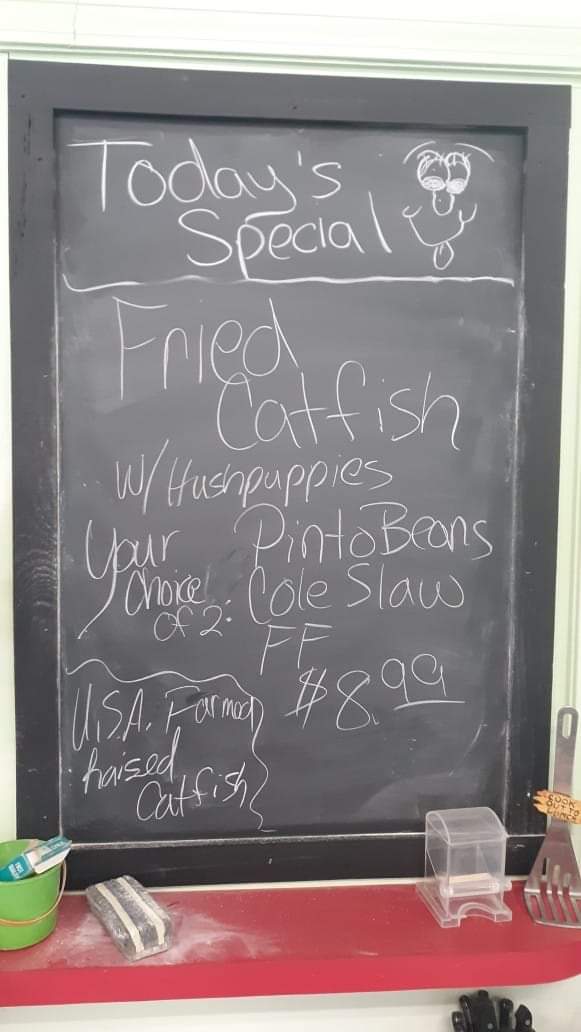 Today's
Special
Fried
Catfish
W/Hushpuppies
Your
Choice
of 2:
Pinto Beans
Cole Slaw
FF
$8.99
U.S.A. Farmed
Raised
Catfish
COOK
OUT TO
LUNCH